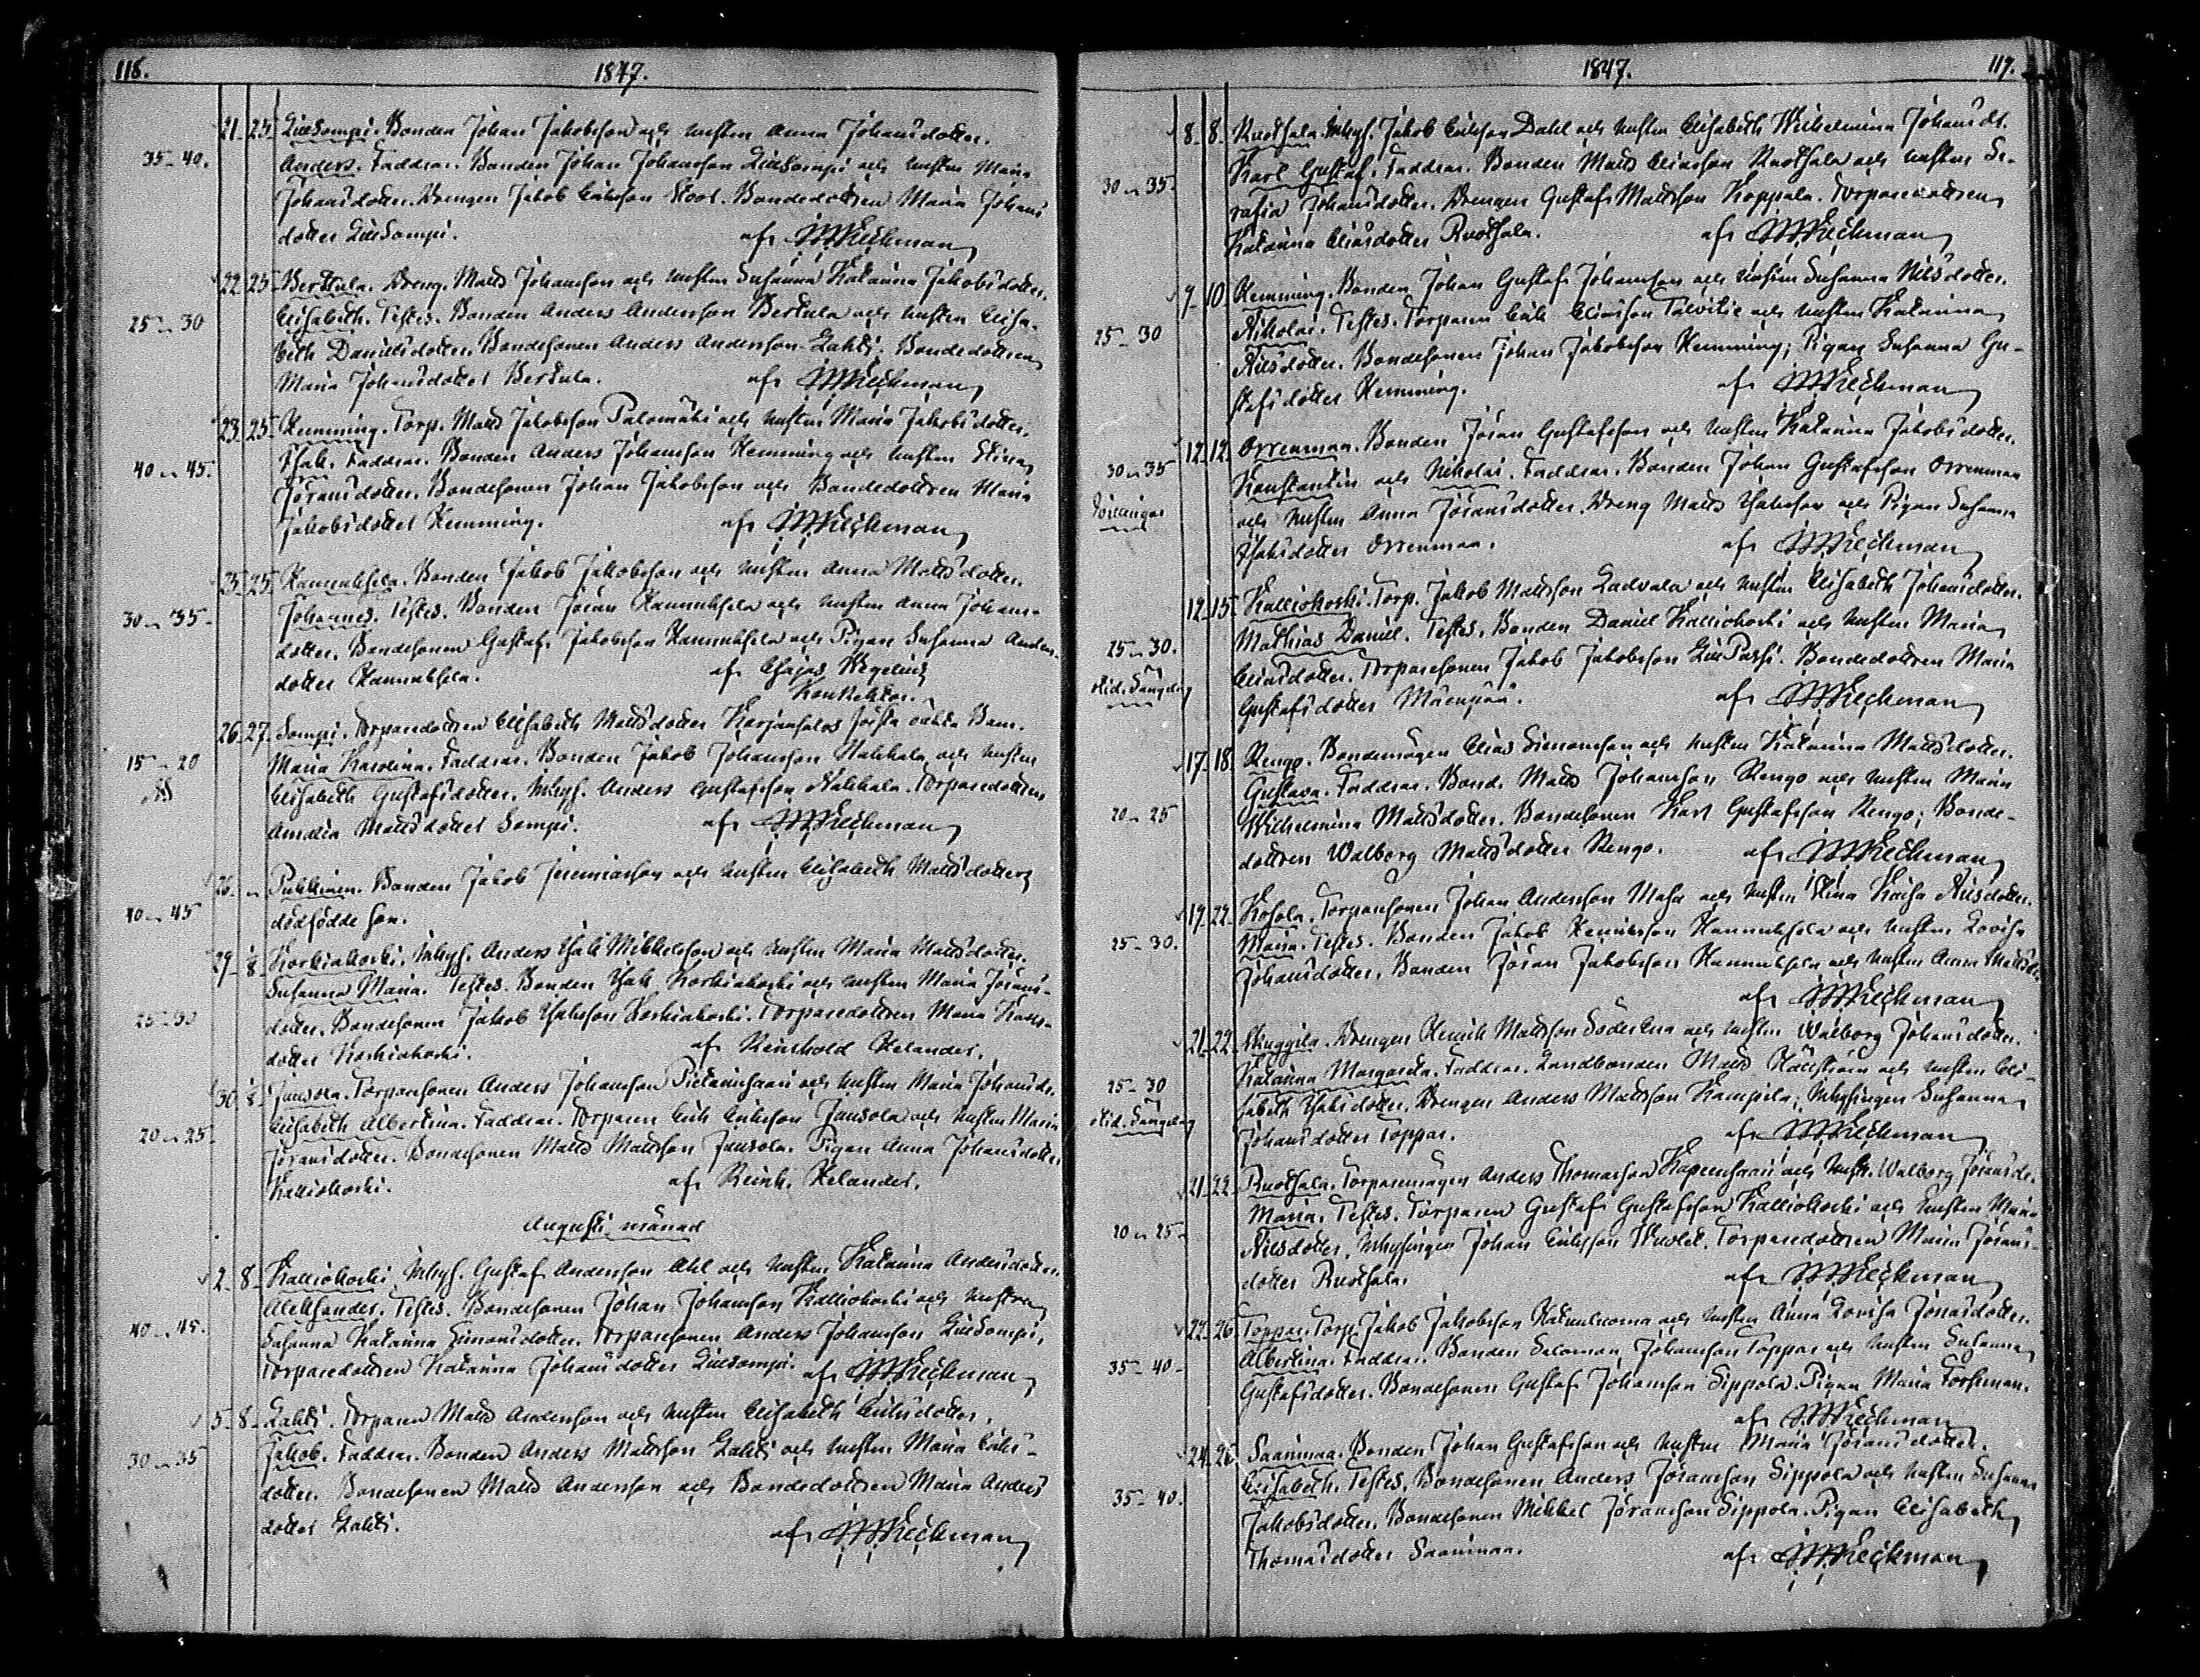 118.
1847.
35-40.
21. 25. Liesompi. Bonden Johan Jakobsson och hustru Anna Johansdotter.
Anders. Faddrar. Bonden Johan Johansson Liesompi och hustru Maria
Johansdotter. Drengen Jakob Eriksson Koos. Bondedottren Maria Johans
dotter Liesompi. af Heckman
25-30
22. 25. Berttula. Dreng. Matts Johansson och hustru Susanna Katarina Jakobsdotter.
Elisabeth. Testes. Bonden Anders Andersson Berttula och hustru Elisa-
beth Danielsdotter. Bondesonen Anders Andersson Lahti. Bondedottren
Maria Johansdotter Berttula. af Heckman
40-45.
23. 25. Hemming. Torp. Matts Jakobsson Palomäki och hustru Maria Jakobsdotter.
Isak. Faddrar. Bonden Anders Johansson Hemming och hustru Stina
Jöransdotter. Bondesonen Johan Jakobsson och Bondedottren Maria
Jakobsdotter Hemming. af Heckman
30-35.
25. 25. Hannuksela. Bonden Jakob Jakobsson och hustru Anna Mattsdotter.
Johannes. Testes. Bonden Jöran Hannuksela och hustru Anna Johans-
dotter. Bondesonen Gustaf Jakobsson Hannuksela och Pigan Susanna Anders-
dotter Hannuksela. af Esajas Wegelius
Konrektor.
15-20
26. 27. Sompi. Torparedottren Elisabeth Mattsdotter första oäkta Barn.
Maria Karolina. Faddrar. Bonden Jakob Johansson Hakkala och hustru
Elisabeth Gustafsdotter. Inhys. Anders Gustafsson Hakkala. Torparedottren
Amalia Mattsdotter Sompi. af Heckman
40-45
26. Pukkinen. Bonden Jakob Jeremiasson och hustru Elisabeth Mattsdotters
dödfödde son.
25-30
29. 1/8 Koskiakoski. Inhys. Anders Isak Mikkelsson och hustru Maria Mattsdotter.
Susanna Maria. Testes. Bonden Isak Koskiakoski och hustru Maria Jörans-
dotter. Bondesonen Jakob Isaksson Koskiakoski. Torparedottren Maria
dotter Koskiakoski. af Reinhold Helander.
20-25.
30. 1/8 Junsola. Torparesonen Anders Johansson Pietarinsaari och hustru Maria Johansdr.
Elisabeth Albertina. Faddrar. Torparen Erik Eriksson Junsola och hustru Maria
Jöransdotter. Bondesonen Matts Mattsson Junsola. Pigan Anna Johansdotter
Kalliokoski. af Reinh. Helander.
Augusti månad
40-45.
2. 8. Kalliokoski. Inhys. Gustaf Andersson Ahl och hustru Katarina Andersdotter.
Aleksander. Testes. Bondesonen Johan Johansson Kalliokoski och hustru
Susanna Katarina Simonsdotter. Torparesonen Anders Johansson Liesompi,
Torparedottren Katarina Johansdotter Liesompi. af Heckman
30-35
5. 8. Lahti. Torparen Matts Andersson och hustru Elisabeth Eriksdotter.
Jakob. Faddrar. Bonden Anders Mattsson Lahti och hustru Maria Eriks-
dotter. Bondesonen Matts Andersson och Bondedottren Maria Anders
dotter Lahti. af Heckman
1847.
119.
30-35.
8. 8. Ruotsala. Inhys. Jakob Eriksson Dahl och hustru Elisabeth Wilhelmina Johansdr.
Karl Gustaf. Faddrar. Bonden Matts Eliasson Ruotsala och hustru Se-
rafia Johansdotter. Drengen Gustaf Mattsson Koppala. Torparedottren
Katarina Eliasdotter Ruotsala. af Heckman
25-30
9. 10. Hemming. Bonden Johan Gustaf Johansson och hustru Susanna Nilsdotter.
Nikolai. Testes. Torparen Erik Eliasson Talvitie och hustru Katarina
Nilsdotter. Bondesonen Johan Jakobsson Hemming; Pigan Susanna Gu-
stafsdotter Hemming. af Heckman
30-35
Tvillingar
12. 12. Orrenmaa. Bonden Jöran Gustafsson och hustru Katarina Jakobsdotter.
Konstantin och Nikolai. Faddrar. Bonden Johan Gustafsson Orrenmaa
och hustru Anna Jöransdotter. Dreng Matts Isaksson och Pigan Susanna
Isaksdotter Orrenmaa. af Heckman
25-30.
12. 15. Kalliokoski. Torp. Jakob Mattsson Ladvala och hustru Elisabeth Johansdotter.
Mathias Daniel. Testes. Bonden Daniel Kalliokoski och hustru Maria
Eliasdotter. Torparesonen Jakob Jakobsson LiePassi. Bondedottren Maria
Gustafsdotter Mäenpää. af Heckman
20-25
17. 18. Rengo. Bondemågen Elias Simonsson och hustru Katarina Mattsdotter.
Gustava. Faddrar. Bond. Matts Johansson Rengo och hustru Maria
Wilhelmina Mattsdotter. Bondesonen Karl Gustafsson Rengo; Bonde-
dottren Walborg Mattsdotter Rengo. af Heckman
25-30.
19. 22. Kosola. Torparesonen Johan Andersson Masa och hustru Stina Kaisa Nilsdotter.
Maria. Testes. Bonden Jakob Henriksson Hannuksela och hustru Lovisa
Johansdotter. Bonden Jöran Jakobsson Hannuksela och hustru Anna Mattsdr.
af Heckman
25-30
21. 22. Skuggila. Drengen Henrik Mattsson Söderena och hustru Walborg Johansdotter.
Katarina Margareta. Faddrar. Landbonden Matts Hällström och hustru Eli-
sabeth Isaksdotter. Drengen Anders Mattsson Kampila; Inhysingen Susanna
Johansdotter Toppar. af Heckman
20-25
21. 22. Ruotsala. Torparemågen Anders Thomasson Haapensaari och hustr. Walborg Jöransdr.
Maria. Testes. Torparen Gustaf Gustafsson Kalliokoski och hustru Maria
Nilsdotter. Inhysingen Johan Eriksson. Torparedottren Maria Jörans-
dotter Ruotsala. af Heckman
35-40-
22. 26. Toppar. Torp. Jakob Jakobsson och hustru Anna Lovisa Jonasdotter.
Albertina. Faddrar. Bonden Salomon Johansson Toppar och hustru Susanna
Gustafsdotter. Bondesonen Gustaf Johansson Sippola. Pigan Maria Forsman.
af Heckman
35-40.
24. 26. Saarimaa. Bonden Johan Gustafsson och hustru Maria Jöransdotter.
Elisabeth. Testes. Bondesonen Anders Jöransson Sippola och hustru Susanna
Jakobsdotter. Bondesonen Mikkel Jöransson Sippola. Pigan Elisabeth
Thomasdotter Saarimaa. af Heckman